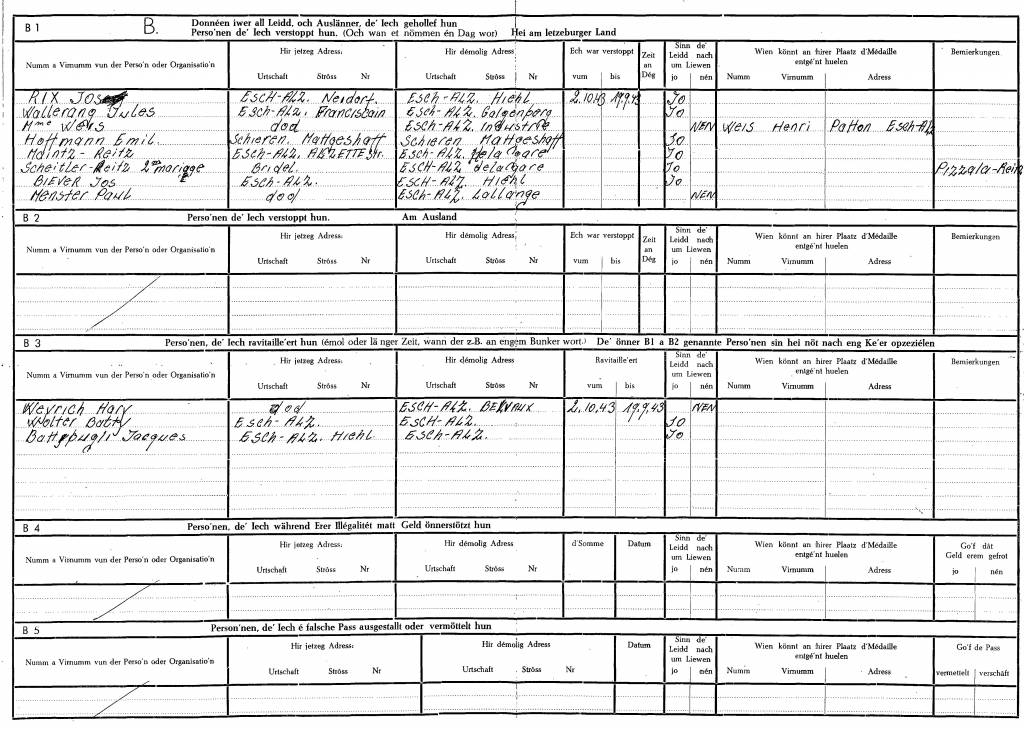 B 1 B. Donnéen iwer all Leidd, och Auslänner, de' Iech gehollef hun
Perso'nen de' Iech verstoppt hun. (Och wan et nömmen én Dag wor) Hei am letzeburger Land
Numm a Virnumm vun der Perso'n oder Organisatio'n
Hir jetzeg Adress:
Urtschaft Ströss Nr
Hir démolig Adress
Urtschaft Ströss Nr
Ech war verstoppt
vum bis
Zeit an Dég
Sinn de' Leidd nach um Liewen
jo nén
Wien könnt an hirer Plaatz d'Médaille entgé'nt huelen
Numm Virnumm Adress
Bemierkungen
RIX Jos ESCH-ALZ. Neidorf. ESCH-ALZ. Hiehl 2.10.43 19.9.43 Jo
Wallerang Jules ESCH-ALZ. ESCH-ALZ. Galgenberg Jo
Mme Weis dod ESCH-ALZ. Industrie NEN Weis Henri Patton Esch-Alz
Hoffmann Emil. Schieren. Schieren Jo
Maintz-Reitz ESCH-ALZ. ALZETTE str. ESCH-ALZ. dela Gare Jo
Scheitler-Reitz 2me mariage Bridel. ESCH-ALZ dela Gare Jo
BIEVER Jos ESCH-ALZ. ESCH-ALZ. Hiehl Jo
Menster Paul dod ESCH-ALZ. Lallange NEN
B 2 Perso'nen de' Iech verstoppt hun. Am Ausland
Numm a Virnumm vun der Perso'n oder Organisatio'n
Hir jetzeg Adress:
Urtschaft Ströss Nr
Hir démolig Adress:
Urtschaft Ströss Nr
Ech war verstoppt
vum bis
Zeit an Dég
Sinn de' Leidd nach um Liewen
jo nén
Wien könnt an hirer Plaatz d'Médaille entgé'nt huelen
Numm Virnumm Adress
Bemierkungen
B 3 Perso'nen, de' Iech ravitaille'ert hun (émol oder länger Zeit, wann der z.B. an engem Bunker wort.) De' önner B1 a B2 genannte Perso'nen sin hei nöt nach eng Ke'er opzeziélen
Numm a Virnumm vun der Perso'n oder Organisatio'n
Hir jetzeg Adress:
Urtschaft Ströss Nr
Hir démolig Adress:
Urtschaft Ströss Nr
Ravitaille'ert
vum bis
Sinn de' Leidd nach um Liewen
jo nén
Wien könnt an hirer Plaatz d'Médaille entgé'nt huelen
Numm Virnumm Adress
Bemierkungen
Weyrich Hary dod ESCH-ALZ. BELVAUX 2.10.43 19.9.43 NEN
Wolter Batty Esch-ALZ. ESCH-ALZ. Jo
Jacques ESCH-ALZ. Hiehl ESCH-ALZ. Jo
B 4 Perso'nen, de' Iech während Erer Illégalitét matt Geld önnerstötzt hun
Numm a Virnumm vun der Perso'n oder Organisatio'n
Hir jetzeg Adress:
Urtschaft Ströss Nr
Hir démolig Adress:
Urtschaft Ströss Nr
d'Somme
Datum
Sinn de' Leidd nach um Liewen
jo nén
Wien könnt an hirer Plaatz d'Médaille entgé'nt huelen
Numm Virnumm Adress
Go'f dât Geld erem gefrot
jo nén
B 5 Person'nen, de' Iech é falsche Pass ausgestallt oder vermöttelt hun
Numm a Virnumm vun der Perso'n oder Organisatio'n
Hir jetzeg Adress:
Urtschaft Ströss Nr
Hir démolig Adress
Urtschaft Ströss Nr
Datum
Sinn de' Leidd nach um Liewen
jo nén
Wien könnt an hirer Plaatz d'Médaille entgé'nt huelen
Numm Virnumm Adress
Go'f de Pass
vermettelt verschâft